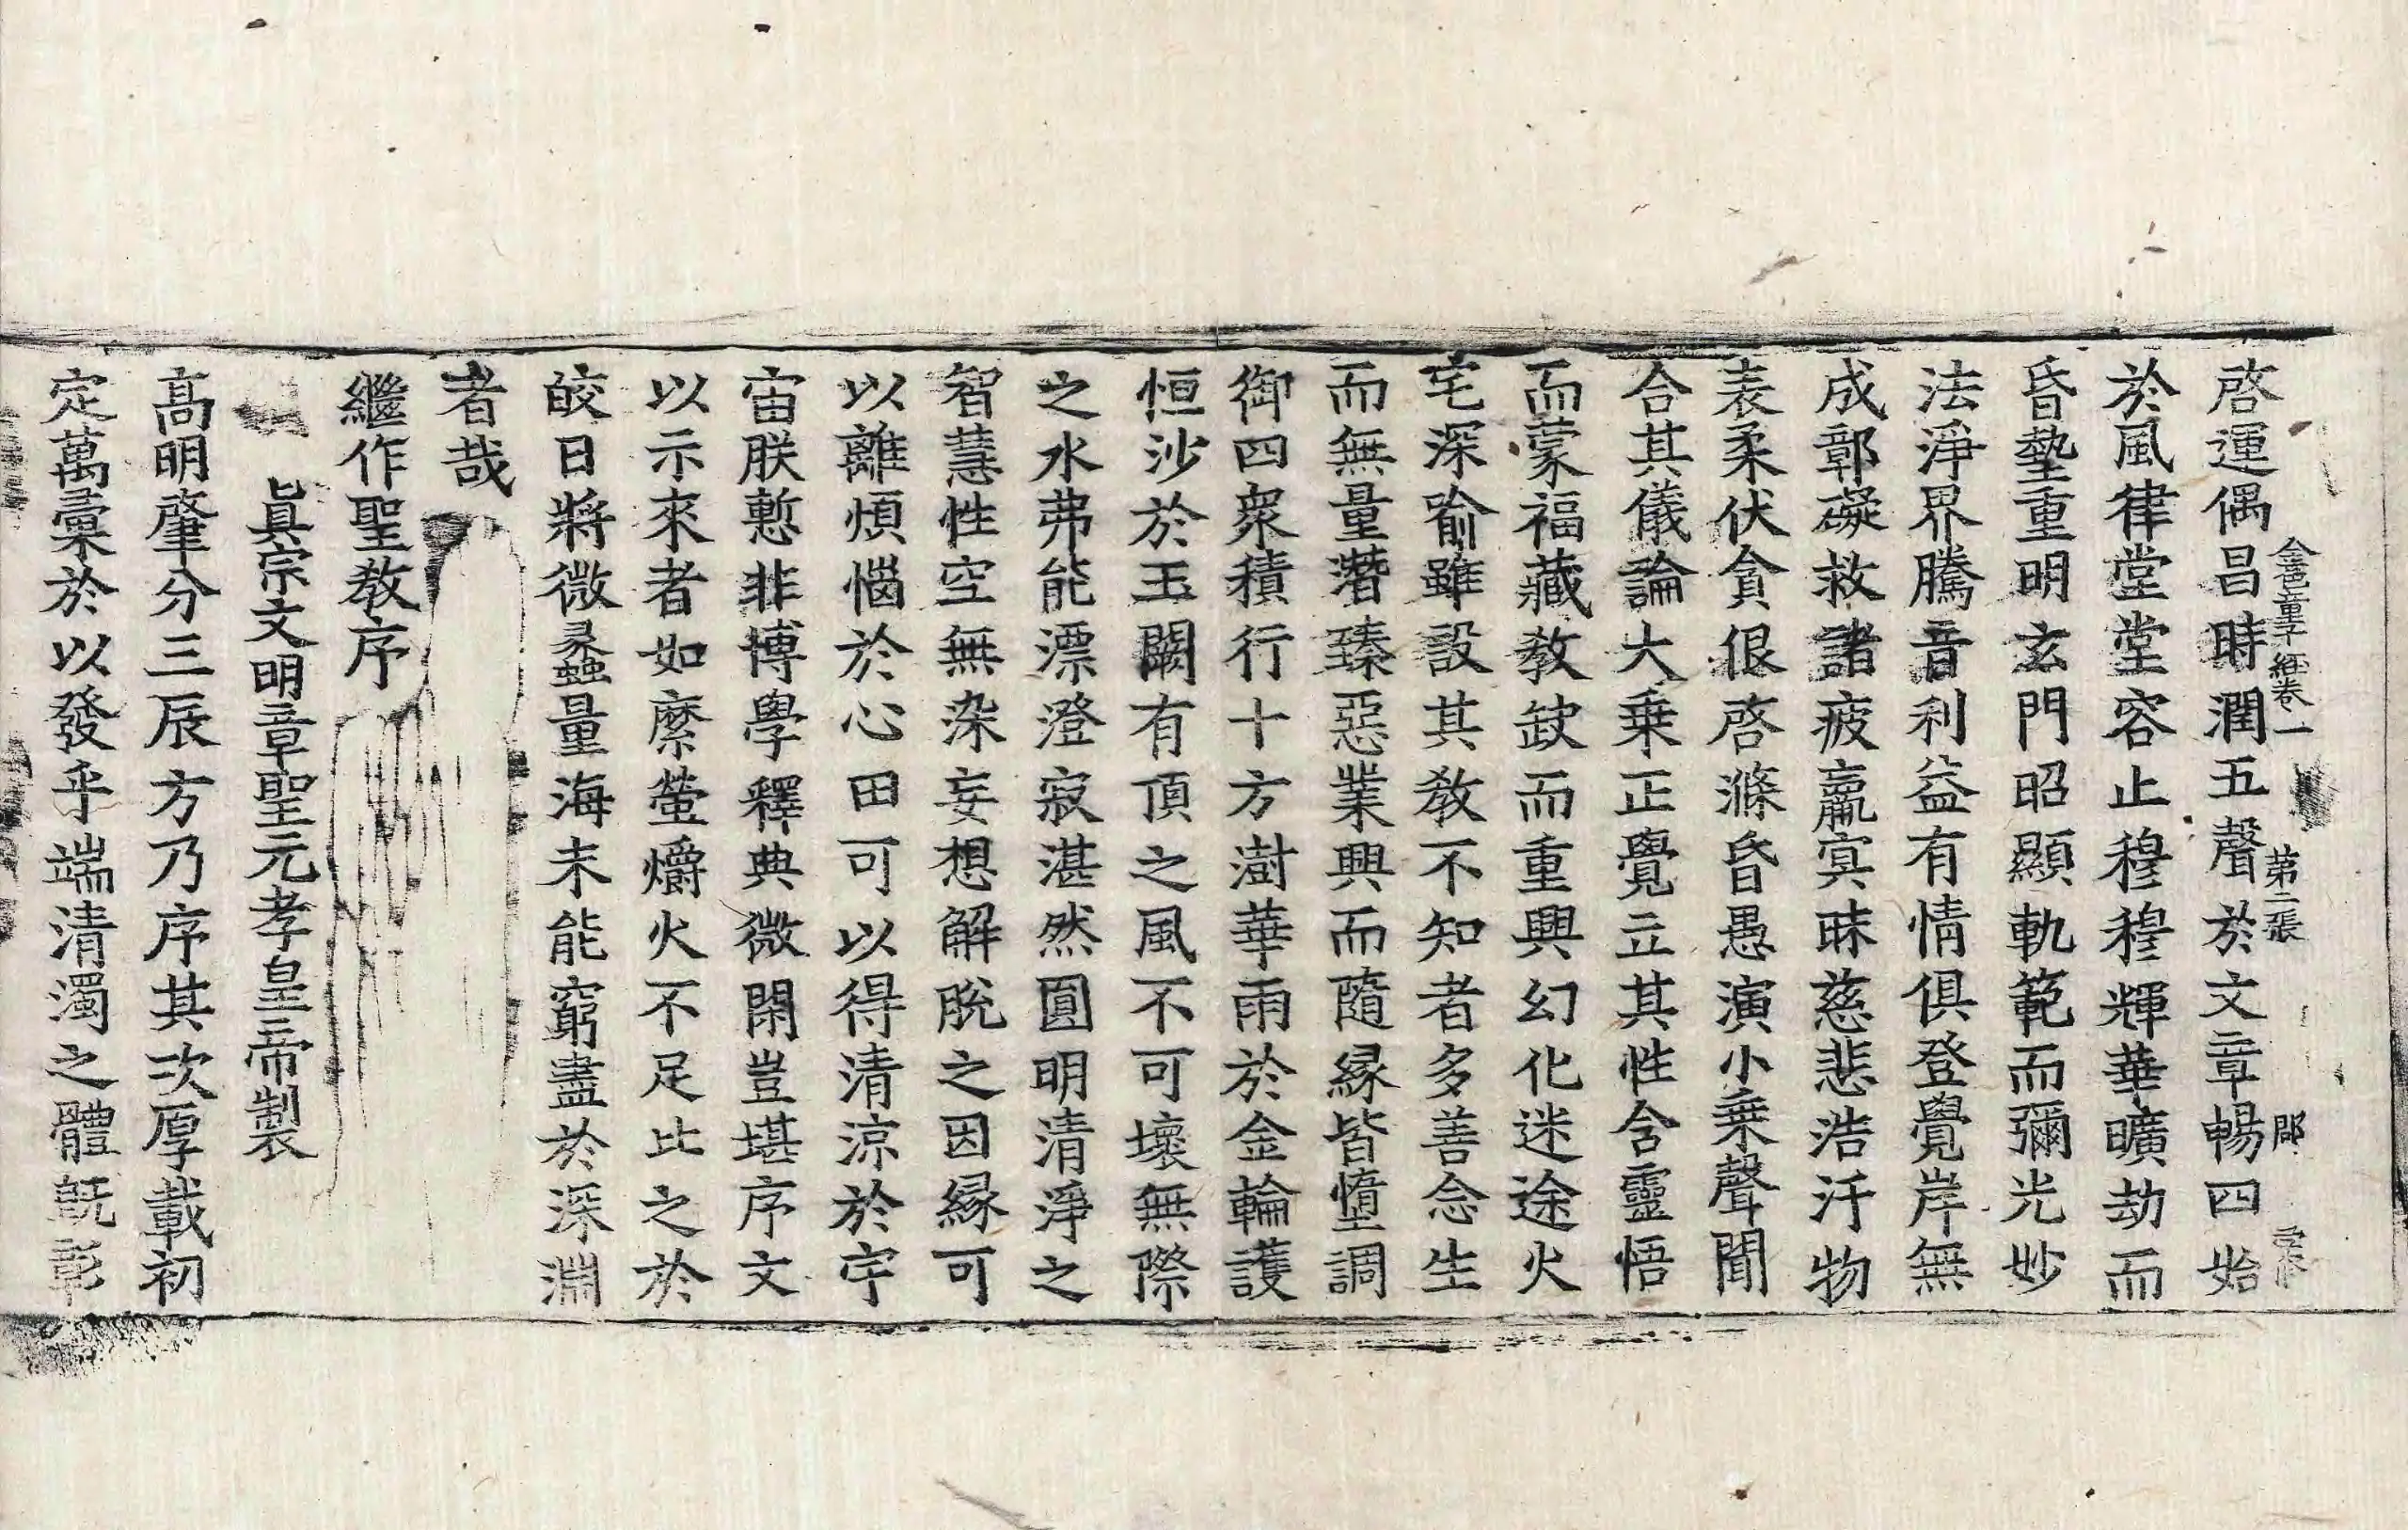 金色童子經卷一　第二張　郡
啓運偶昌時潤五聲於文章暢四始
於風律堂堂容止穆穆輝華曠劫而
昏墊重明玄門昭顯軌範而彌光妙
法淨界騰音利益有情俱登覺岸無
成鄣礙救諸疲羸㝠昧慈悲浩汗物
表柔伏貪佷啓滌昏愚演小乗聲聞
合其儀論大乗正覺立其性含靈悟
而蒙福藏教缺而重興幻化迷途火
宅深喻雖設其教不知者多善念生
而無量潛臻惡業興而隨縁皆墮調
御四衆積行十方澍華雨於金輪護
恒沙於玉闕有頂之風不可壞無際
之水弗能漂澄寂湛然圓明清淨之
智慧性空無染妄想解脫之因縁可
以離煩惱於心田可以得清涼於宇
宙朕慙非博學釋典微閑豈堪序文
以示來者如縻螢爝火不足比之於
皎日將微蠡量海未能窮盡於深淵
者哉
繼作聖教序
眞宗文明章聖元孝皇帝製
髙明肇分三辰方乃序其次厚載初
定萬彙於以發乎端清濁之體旣彰